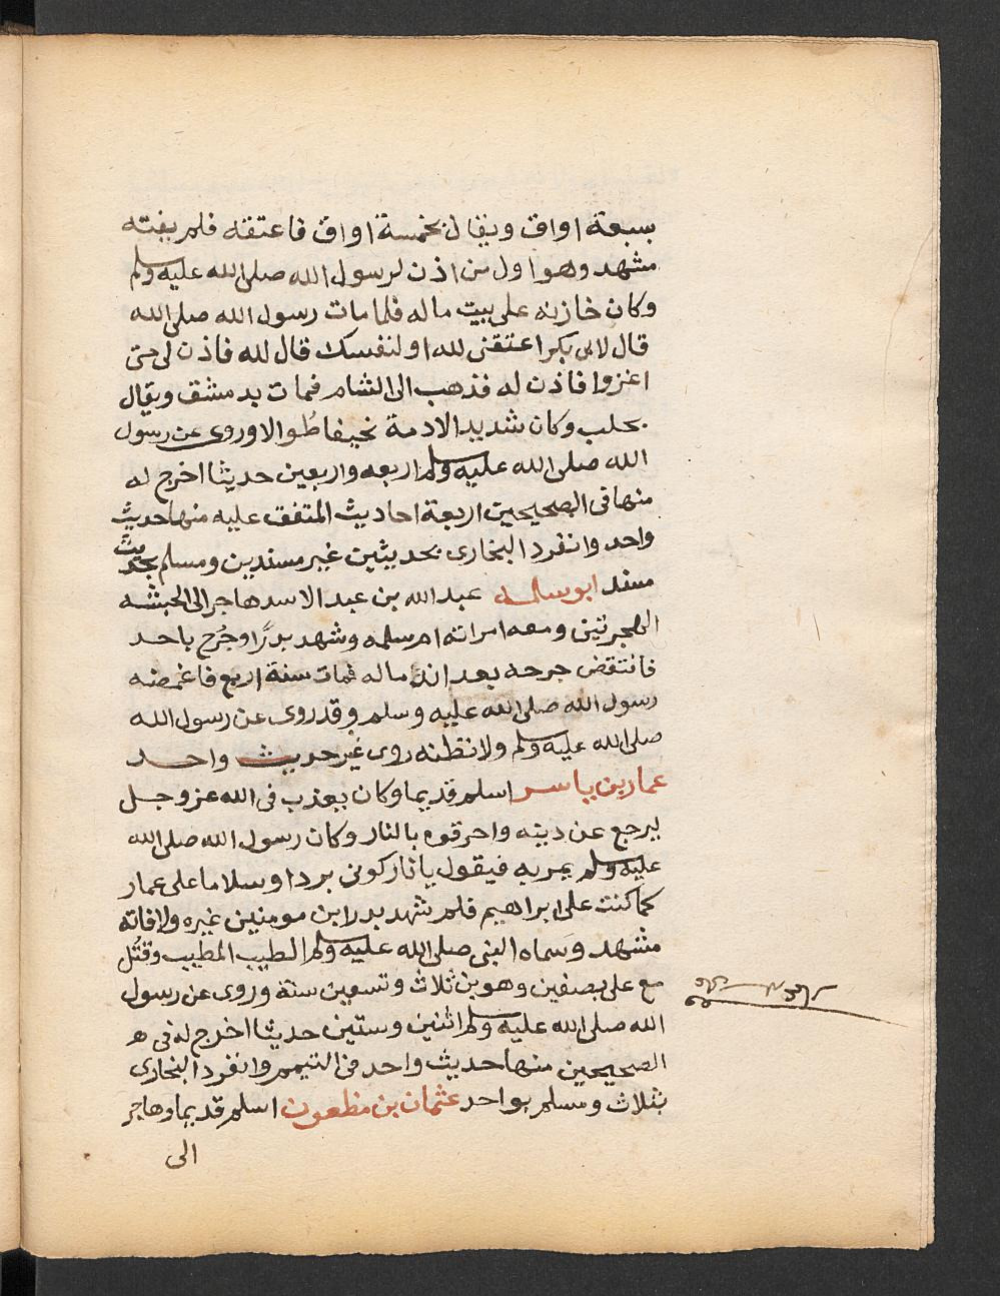 بسبعة اواق ويقال بخمسة اواق فاعتقه فلم يفته
مشهد وهو اول من اذن لرسول الله صلى الله عليه وسلم
وكان خازنه على بيت ماله فلما مات رسول الله صلى الله
قال لابى بكر اعتقنى لله او لنفسك قال لله فاذن لى حتى
اغزوا فاذن له فذهب الى الشام فمات بدمشق ويقال
بحلب وكان شديد الادمة نحيفا طُوالا وروى عن رسول
الله صلى الله عليه وسلم اربعه واربعين حديثا اخرج له
منها فى الصحيحين اربعة احاديث المتفق عليه منها حديث
واحد وانفرد البخارى بحديثين غير مسندين ومسلم بحديث
مسند ابو سلمه عبد الله بن عبد الاسد هاجر الى الحبشه
الهجرتين ومعه امراته ام سلمه وشهد بدرًا وجُرح باحد
فانتقض جرحه بعد اندماله فمات سنة اربع فاغمضه
رسول الله صلى الله عليه وسلم وقد روى عن رسول الله
صلى الله عليه وسلم ولا نظنه روى غير حديث واحد
عمار بن ياسر اسلم قديما وكان يعذب فى الله عز وجل
ليرجع عن دينه واحرقوه بالنار وكان رسول الله صلى الله
عليه وسلم يمر به فيقول يا نار كونى بردا وسلاما على عمار
كما كنت على ابراهيم فلم شهد بدرا بن مومنين غيره ولا فاته
مشهد وسماه النبى صلى الله عليه وسلم الطيب المطيب وقُتل
مع على بصفين وهو بن ثلاث وتسعين سنة وروى عن رسول
الله صلى الله عليه وسلم اثنين وستين حديثا اخرج له فى ه
الصحيحين منها حديث واحد فى التيمم وانفرد البخارى
بثلاث ومسلم بواحد عثمان بن مظعون اسلم قديما وهاجر
الى